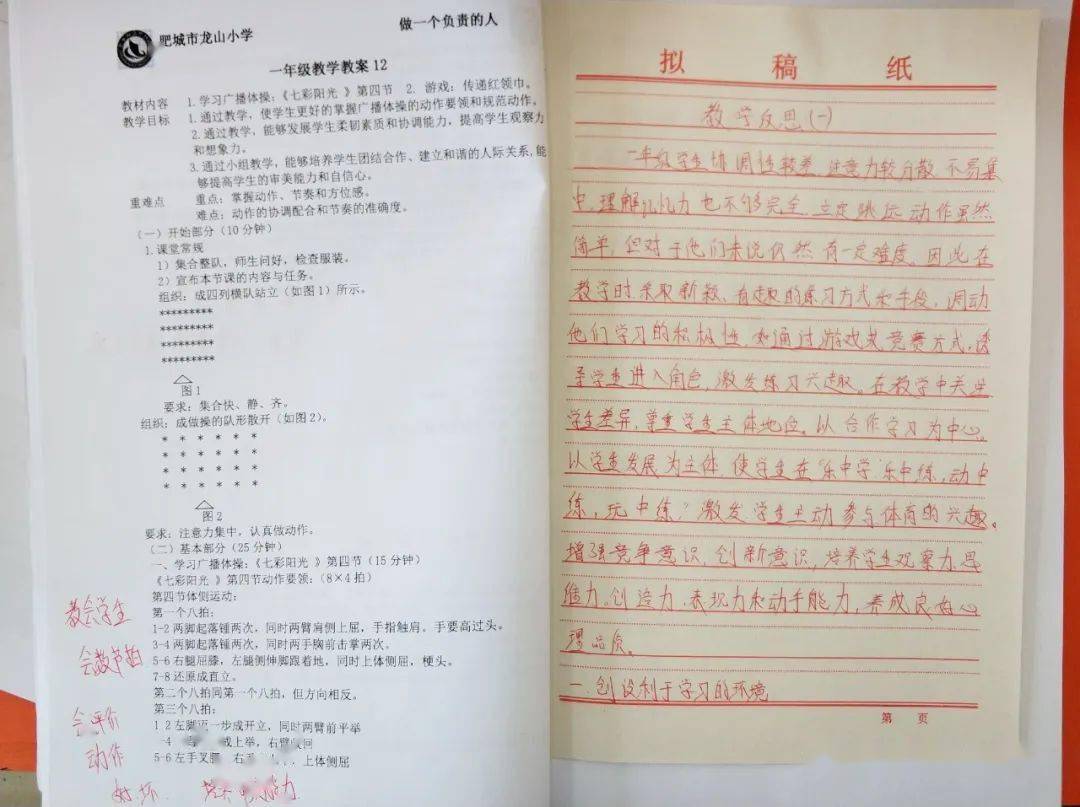 肥城市龙山小学
做一个负责的人
一年级教学教案 12
教材内容 1.学习广播体操:《七彩阳光 》第四节 2. 游戏:传递红领巾。
教学目标 1.通过教学,使学生更好的掌握广播体操的动作要领和规范动作。
2.通过教学,能够发展学生柔韧素质和协调能力,提高学生观察力
和想象力。
3.通过小组教学,能够培养学生团结合作、建立和谐的人际关系,能
够提高学生的审美能力和自信心。
重难点 重点:掌握动作、节奏和方位感。
难点:动作的协调配合和节奏的准确度。
(一)开始部分(10 分钟)
1.课堂常规
1)集合整队,师生问好,检查服装。
2)宣布本节课的内容与任务。
组织:成四列横队站立(如图 1)所示。
*********
*********
*********
*********
图 1
要求:集合快、静、齐。
组织:成做操的队形散开(如图 2)。
* * * * * *
* * * * * *
* * * * * *
* * * * * *
图 2
要求:注意力集中,认真做动作。
(二)基本部分(25 分钟)
一、学习广播体操:《七彩阳光 》第四节(15 分钟)
《七彩阳光 》第四节动作要领:(8×4 拍)
第四节体侧运动:
第一个八拍:
1-2 两脚起落锤两次,同时两臂肩侧上屈,手指触肩。手要高过头。
3-4 两脚起落锤两次,同时两手胸前击掌两次。
5-6 右腿屈膝,左腿侧伸脚跟着地,同时上体侧屈,梗头。
7-8 还原成直立。
第二个八拍同第一个八拍,但方向相反。
第三个八拍:
1 2 左脚迈一步成开立,同时两臂前平举
-4 成上举,右臂 回
5-6 左手叉腰 右 上体侧屈
教会学生
会数节拍
会评价
动作
好坏
拟稿纸
教学反思(一)
一年级学生协调性较差,注意力较分散,不易集
中,理解记忆力也不够完全,立定跳远动作虽然
简单,但对于他们来说仍然有一定难度。因此在
教学时采取新颖、有趣的练习方式和手段,调动
他们学习的积极性,如通过游戏或竞赛方式,诱
导学生进入角色,激发练习兴趣。在教学中关注
学生差异,尊重学生主体地位。以合作学习为中心。
以学生发展为主体,使学生在“乐中学,乐中练,动中
练,玩中练”激发学生主动参与体育的兴趣。
增强竞争意识,创新意识,培养学生观察力,思
维力,创造力,表现力和动手能力,养成良好心
理品质。
一.创设利于学习的环境
第 页